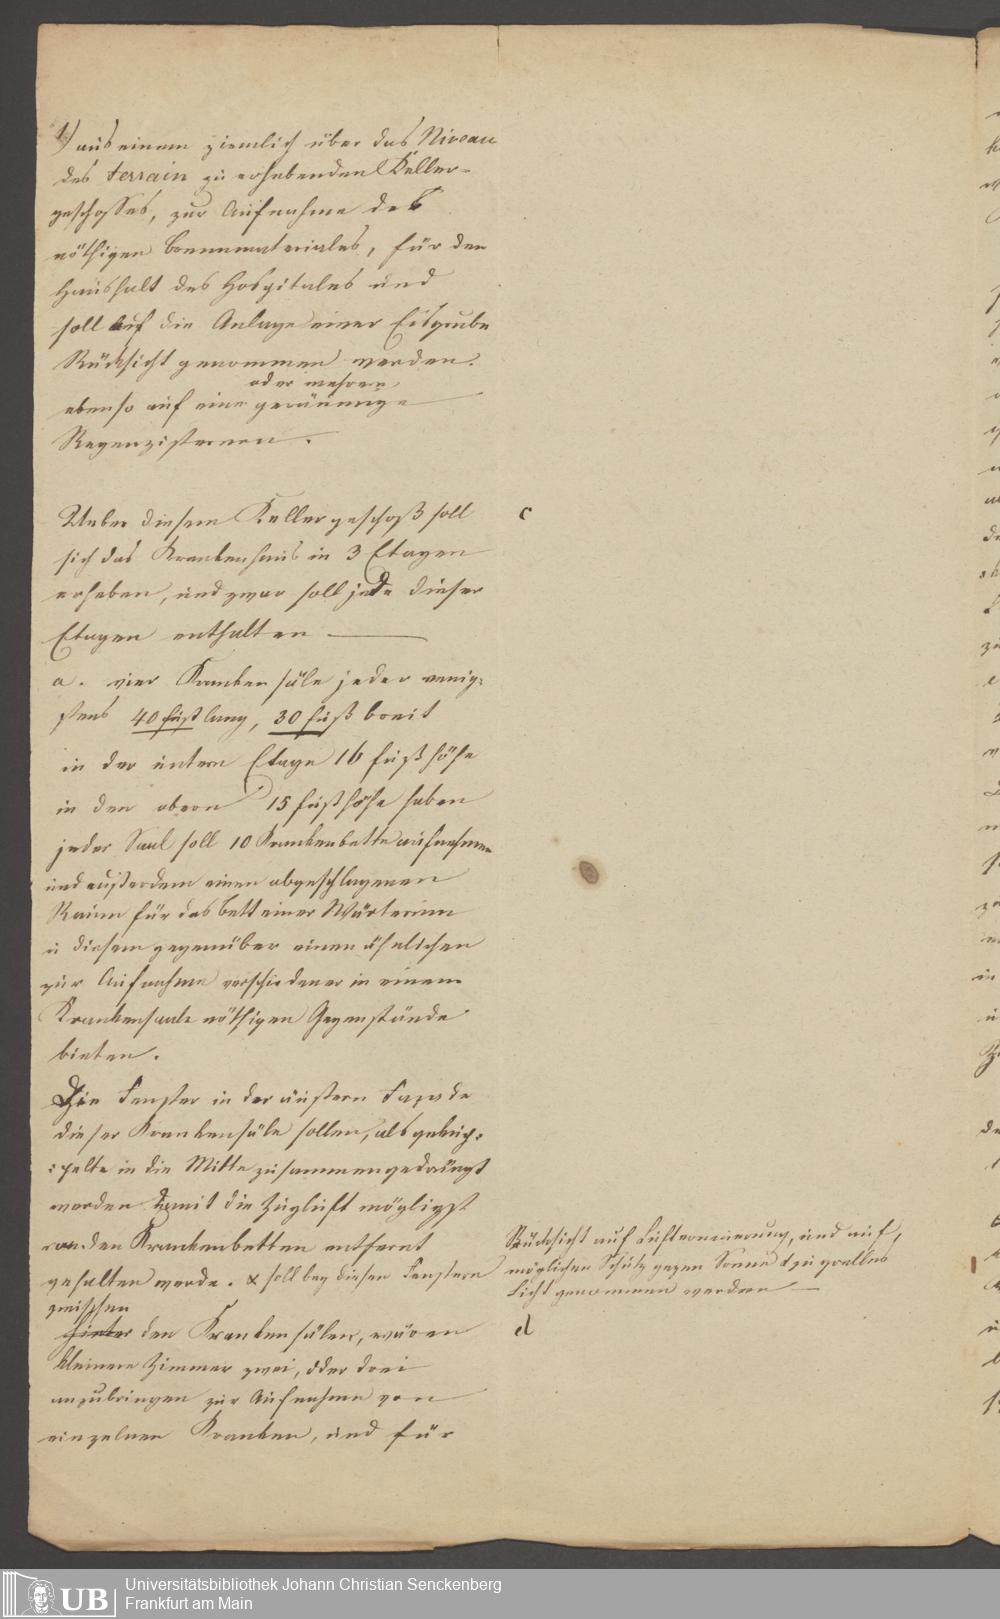 1) aus einem ziemlich über das Niveau
des terrain zu erhebenden Keller-
geschosses, zur Aufnahme des
nöthigen Brennmateriales, für den
Haushalt des Hospitales und
soll auf die Anlage einer Eisgrube
Rücksicht genommen werden.
oder mehrere
ebenso auf eine geräumige
Regenzisternen.
Ueber diesem Kellergeschoß soll
sich das Krankenhaus in 3 Etagen
erheben, und zwar soll jede dieser
Etagen enthalten —
a. vier Krankensäle jeder wenig-
stens 40 fuß lang, 30 fuß breit
in der untern Etage 16 fuß höhe
in den obern 15 fuß höhe haben
jeder Saal soll 10 Krankenbette aufnehmen
und außerdem einen abgeschlagenen
Raum für das Bett einer Wärterinn
u diesem gegenüber einen ähnlichen
zur Aufnahme verschiedener in einem
Krankensaale nöthigen Gegenstände
bieten.
Die Fenster in der äußern Façade
dieser Krankensäle sollen, als gekup-
pelte in die Mitte zusammengedrängt
werden damit die Zugluft möglichst
von den Krankenbetten entfernt
gehalten werde. x soll bey diesen Fenstern
Rücksicht auf Lufterneuerung, und auf
möglichen Schutz gegen Sonne & zu grelles
Licht genommen werden —
zwischen
hinter den Krankensälen, wären
kleinere Zimmer zwei, oder drei
anzubringen zur Aufnahme von
einzelnen Kranken, und für
c
d
Universitätsbibliothek Johann Christian Senckenberg
Frankfurt am Main
UB